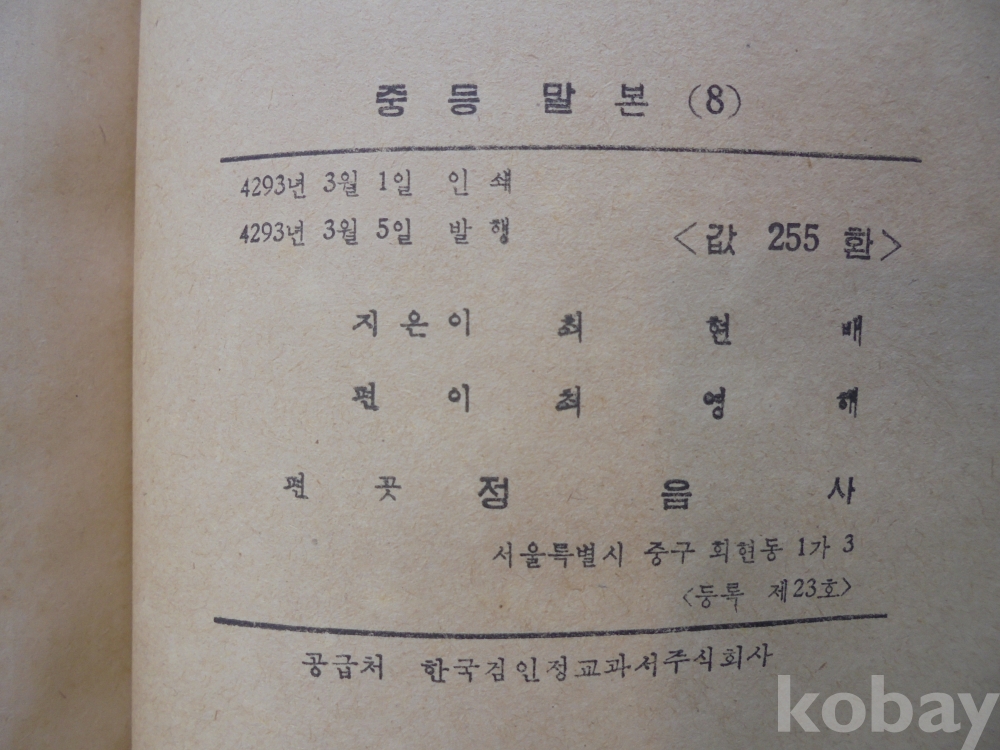 중등 말본 (8)
4293년 3월 1일 인쇄
4293년 3월 5일 발행
<값 255 환>
지은이 최현배
편이 최영해
편곳 정음사
서울특별시 중구 회현동 1가 3
<등록 제23호>
공급처 한국검인정교과서주식회사
kobay